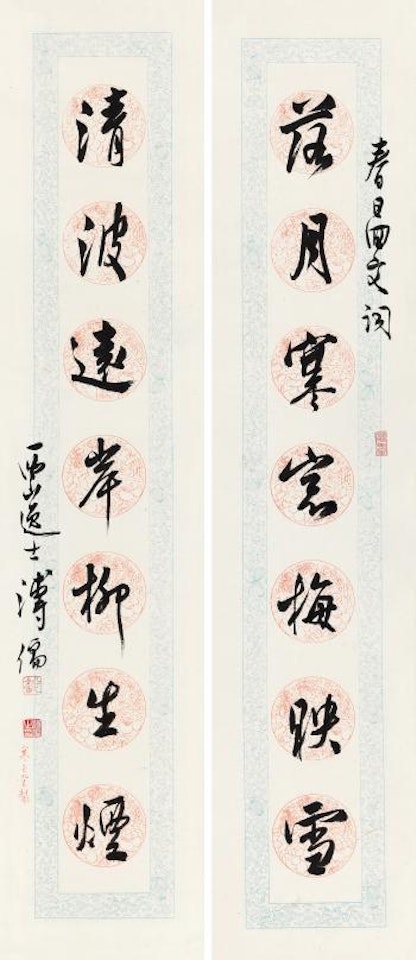 春日回文詞
落月寒窓梅映雪
清波遠岸柳生煙
西山逸士溥儒